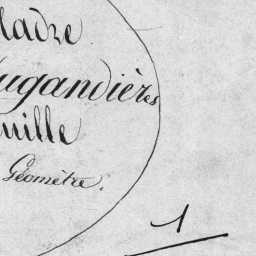 ladre
ugandières
uille
Géomètre.
1